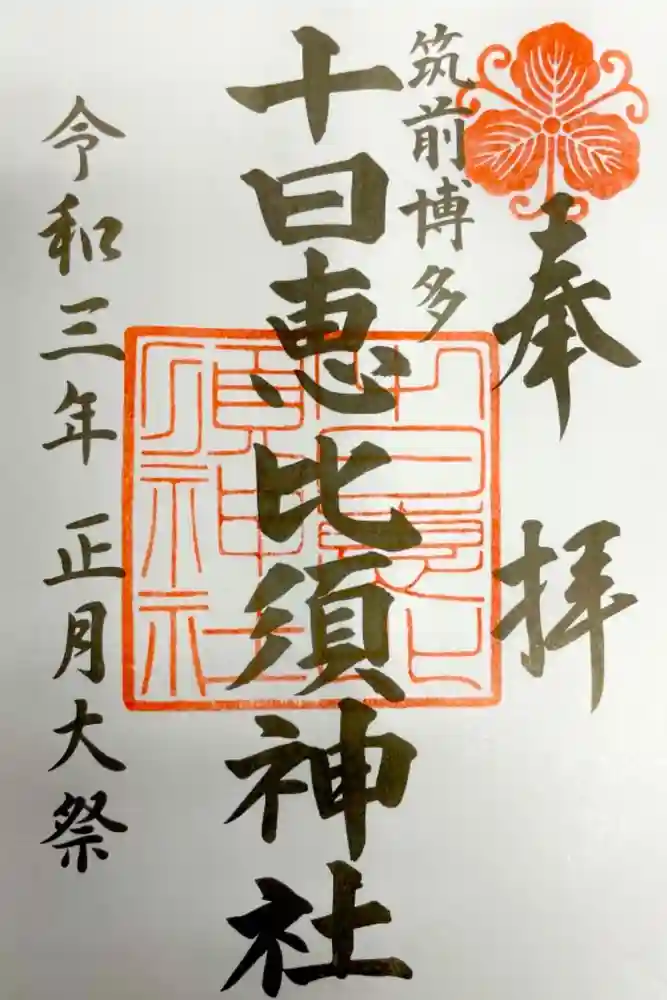 奉拝
筑前博多
十日恵比須神社
十日恵比須神社
令和三年 正月大祭